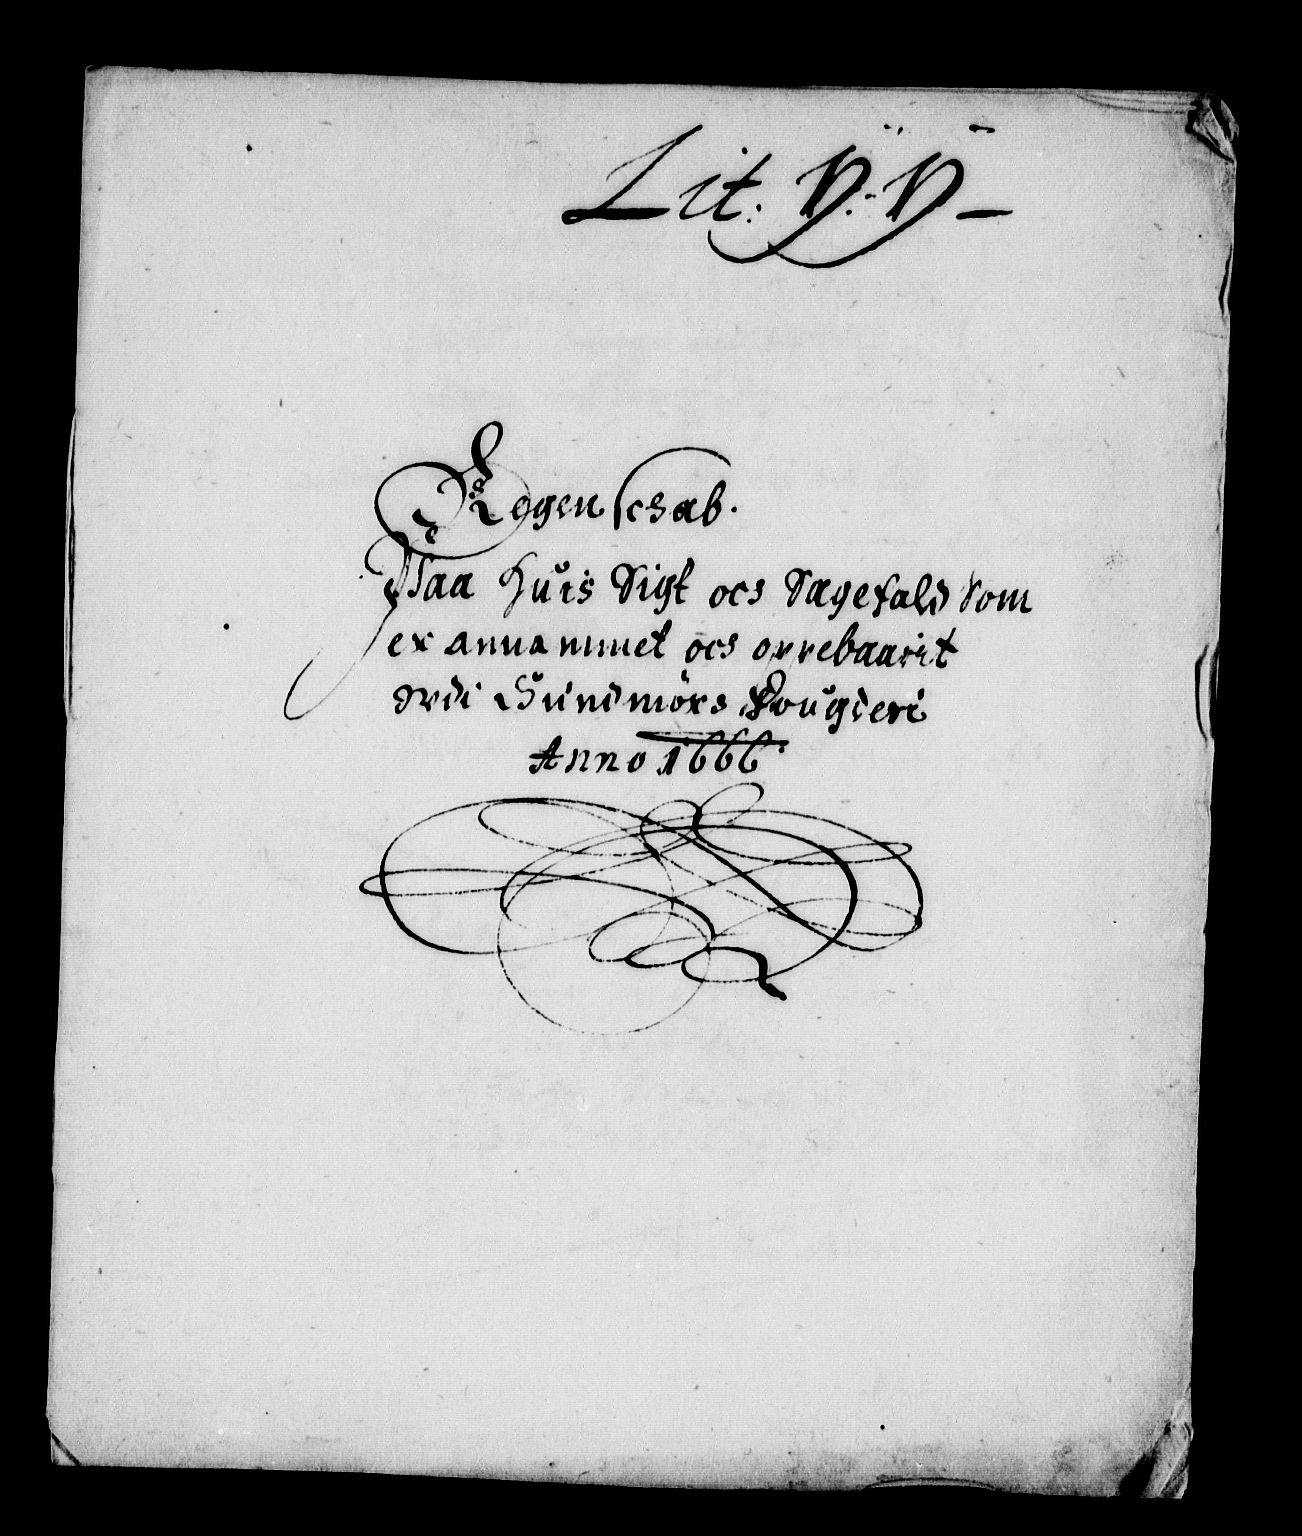 Lit: ÿ:ÿ
Regenschab.
Paa Huis Sigt och Sagefald Som
er annammet och oppebaarit
Sundmörs Fougderi
Anno 1666